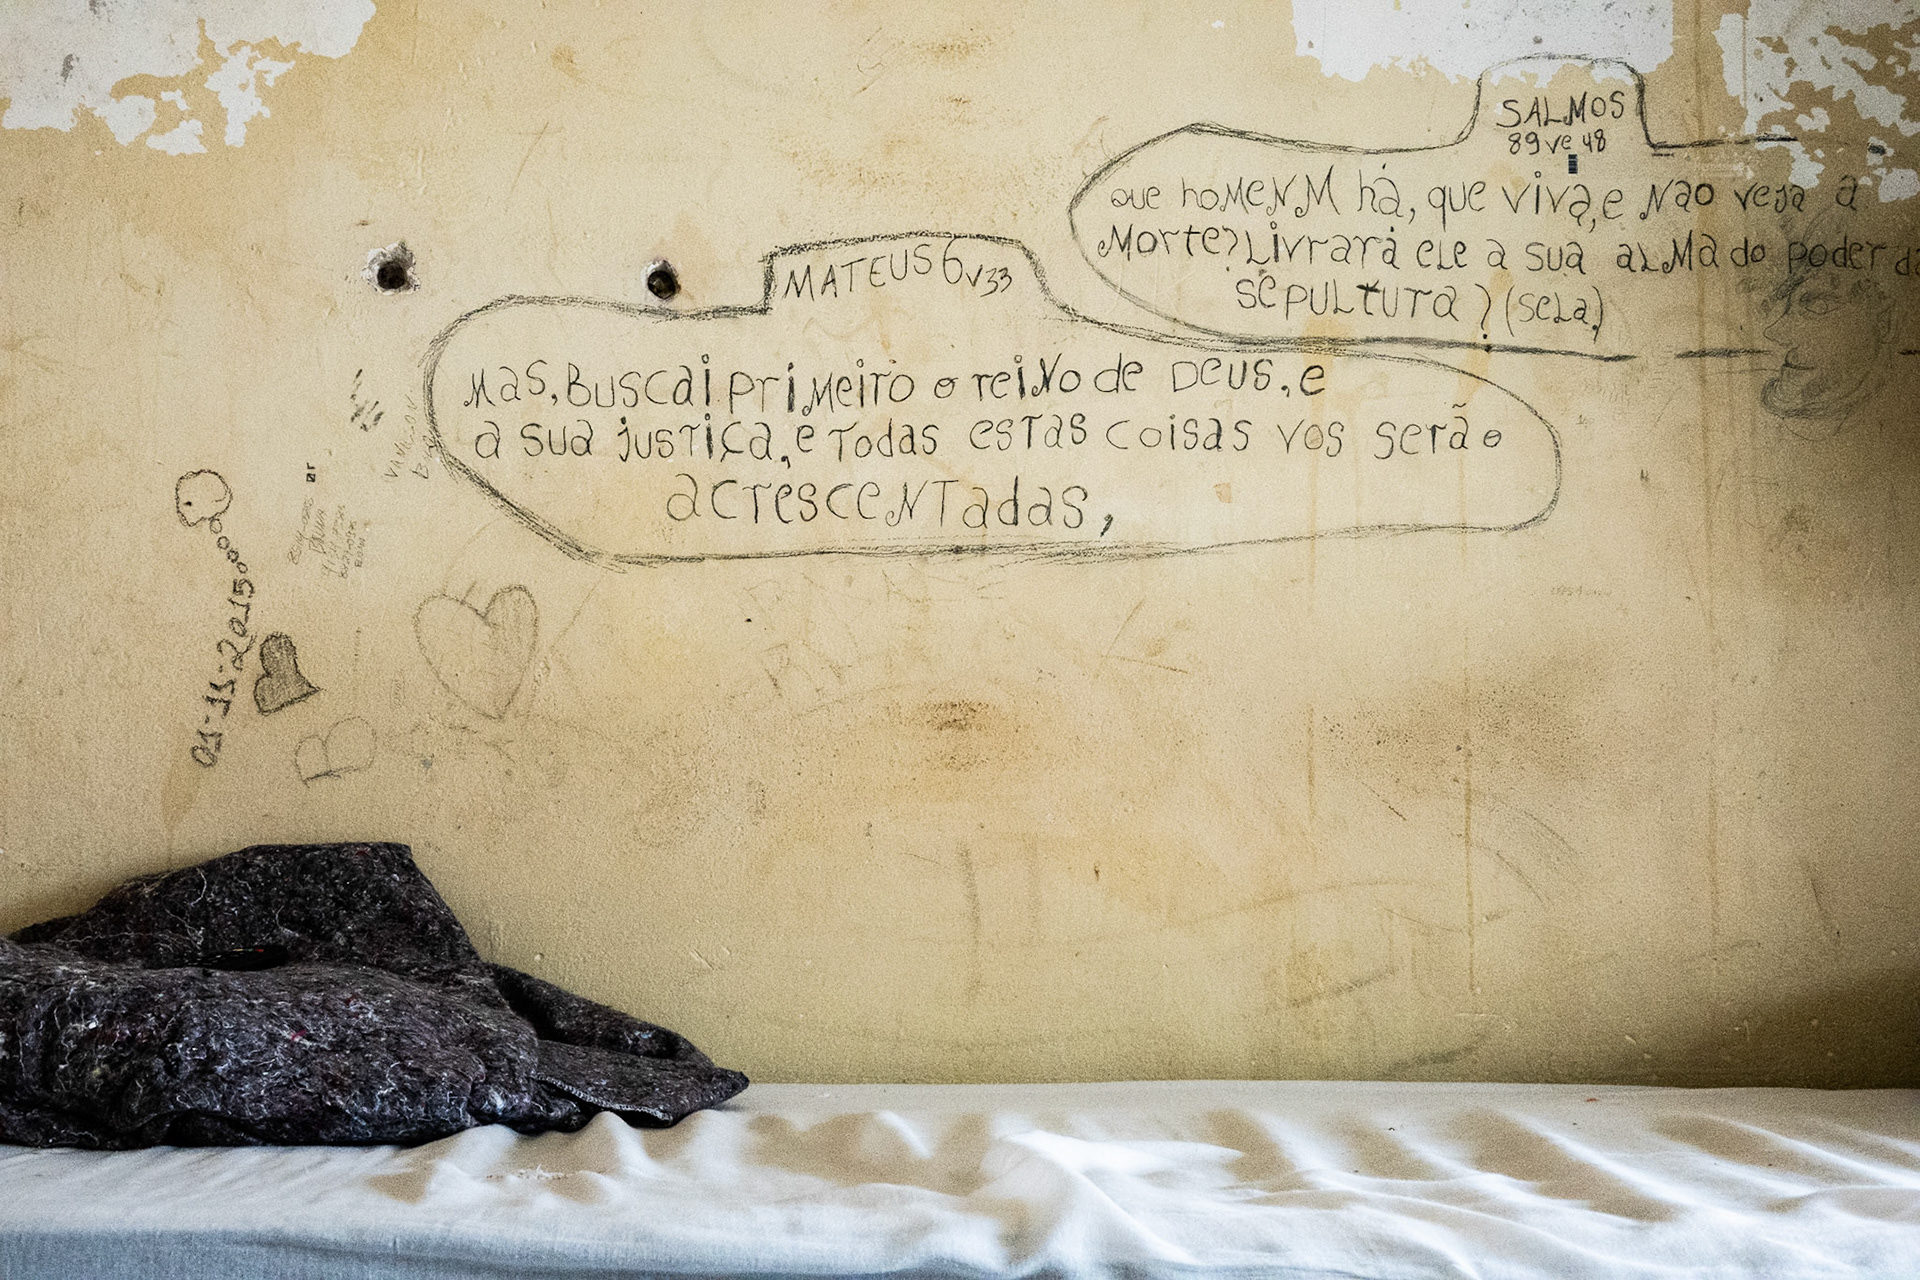 SALMOS
89 ve 48
que homeNM há, que viva, e Nao veja a
Morte? Livrará ele a sua alma do poder da
sepultura? (sela)
MATEUS 6 v33
Mas, Buscai primeiro o reiNo de Deus, e
a sua justiça, e todas estas coisas vos serão
acrescentadas,
01-11-2015
B